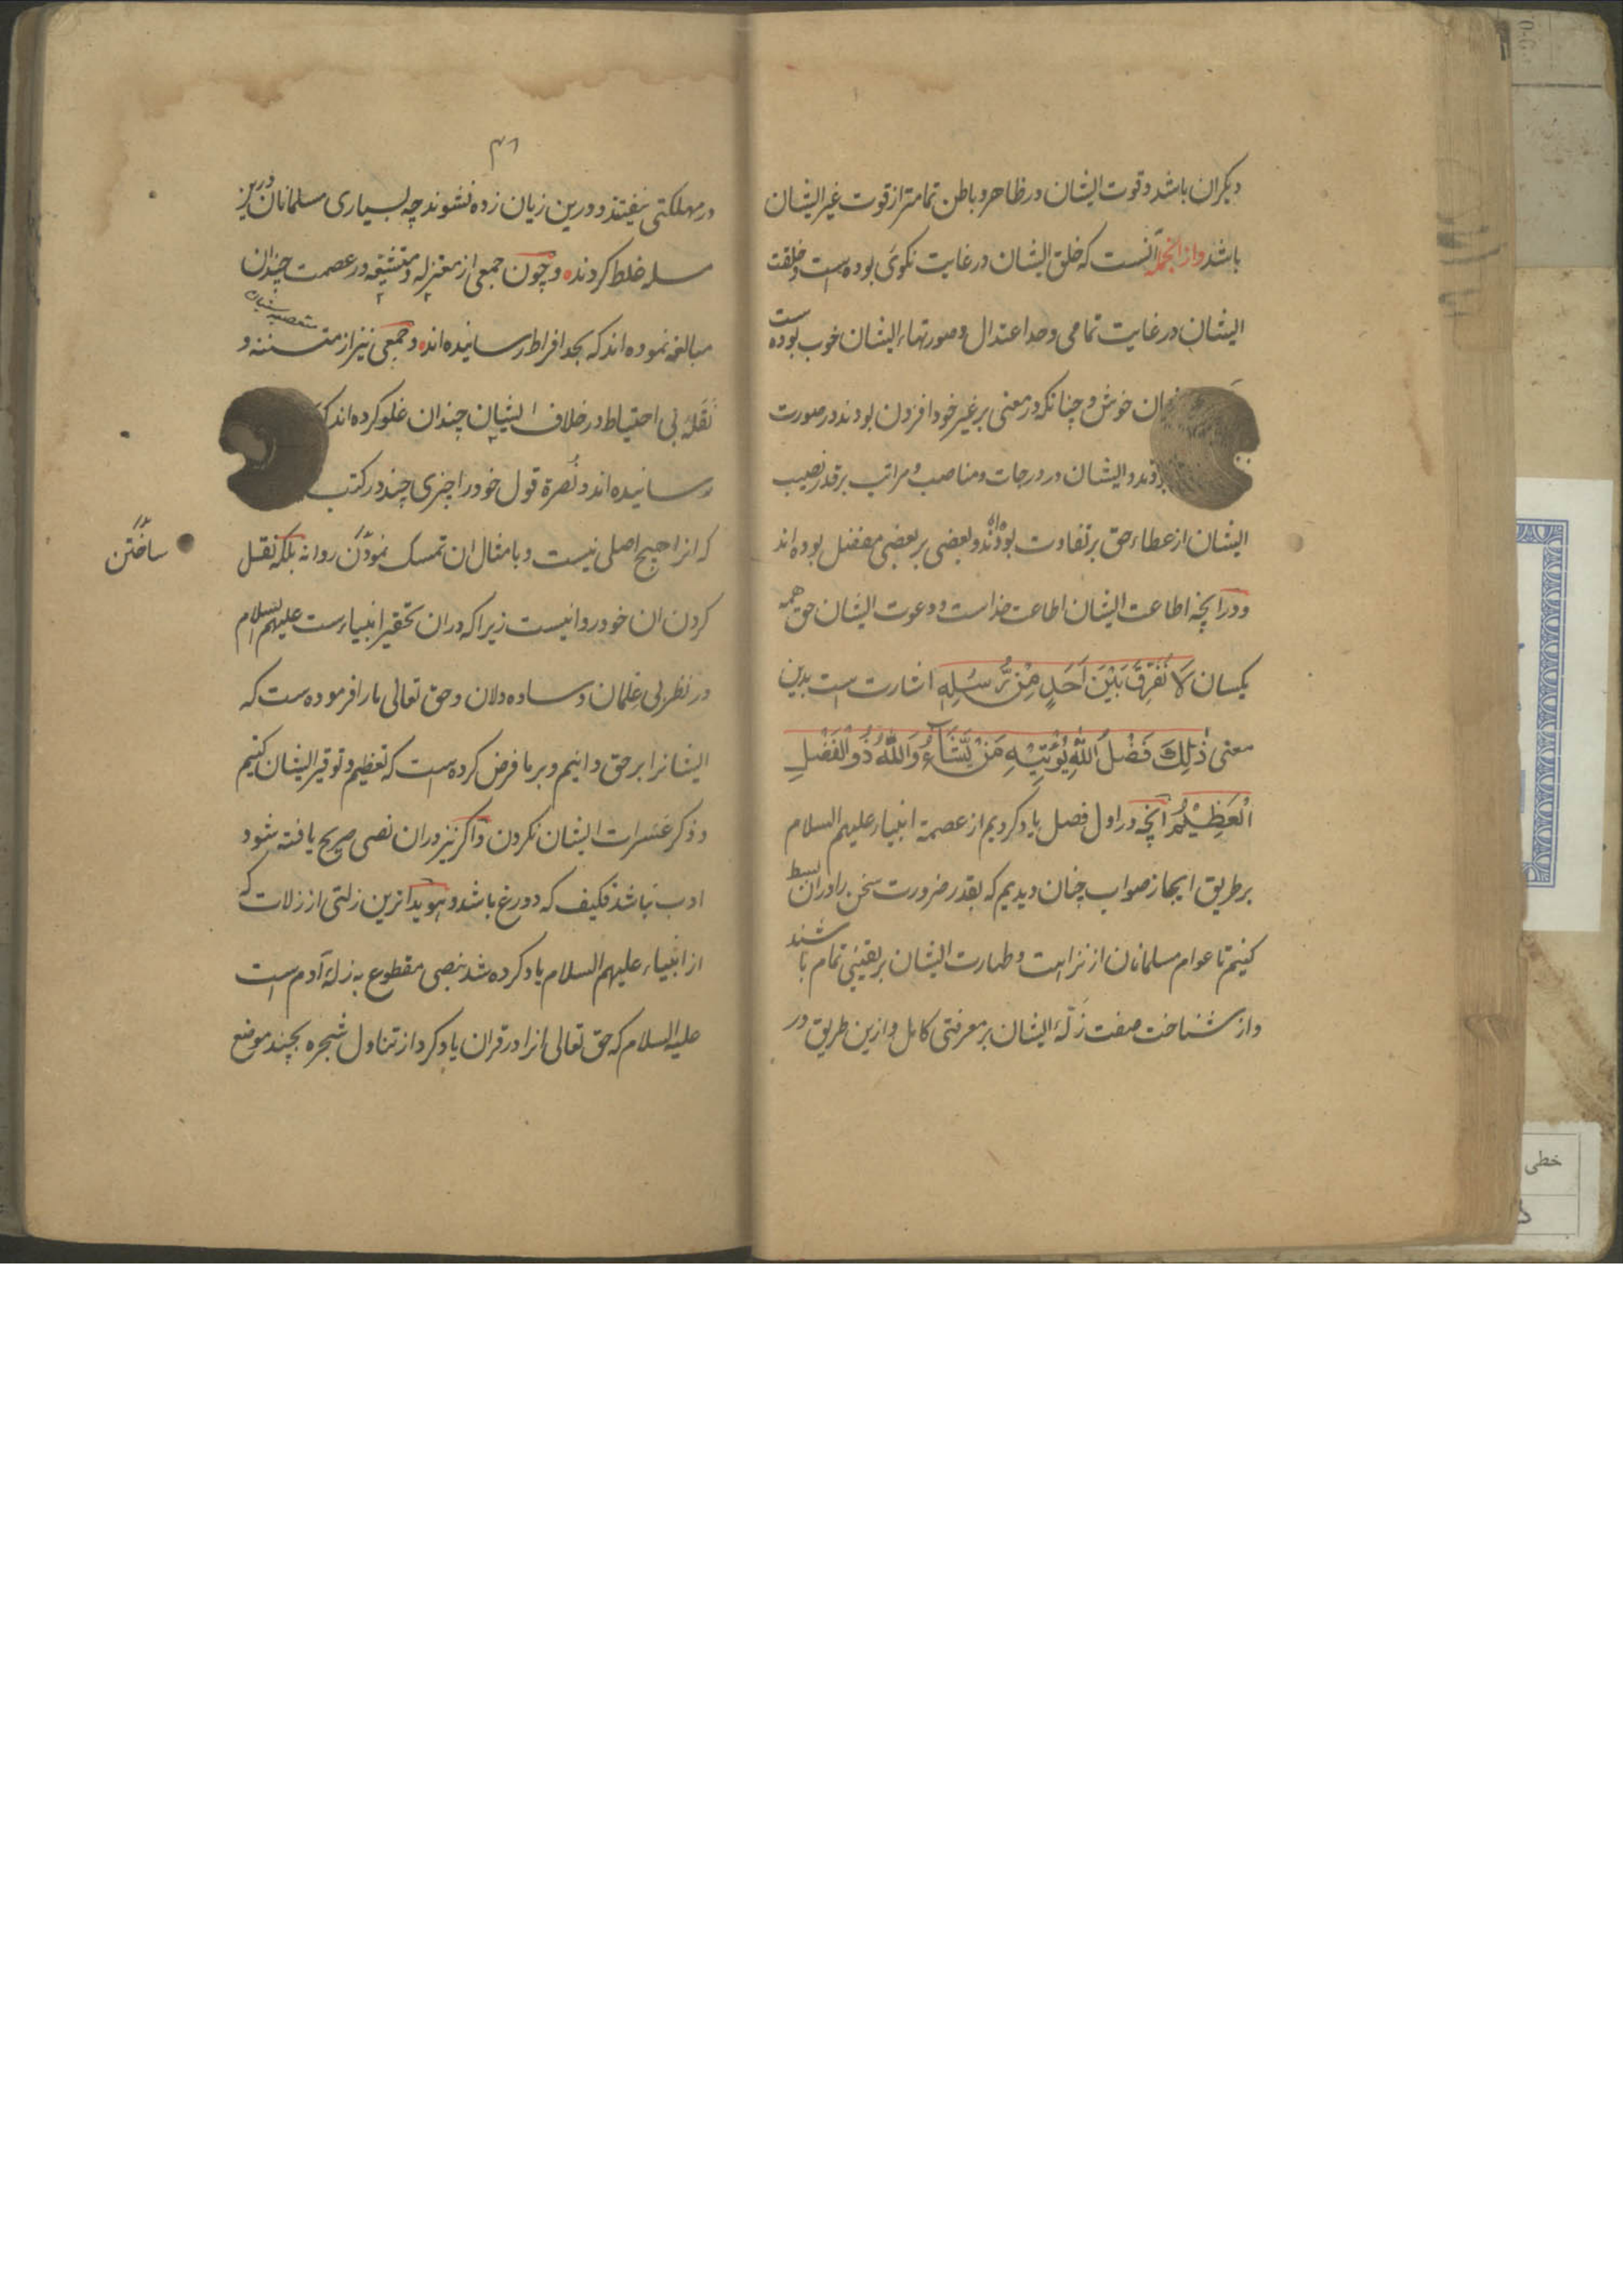 دیکران باشد و قوت ایشان در ظاهر و باطن تمامتر از قوت غیر ایشان
باشد و از انجمله آنست که خلق ایشان در غایت نکوی بوده است و خلقت
ایشان در غایت تمامی و حد اعتدال و صورتهاء ایشان خوب بوده ست
خوش و چنانکه در معنی بر غیر خود افزون بودند در صورت
و ایشان در درجات و مناصب و مراتب بر قدر نصیب
ایشان از عطاء حق بر تفاوت بوده اند و بعضی بر بعضی مفضل بوده اند
و در انچه اطاعت ایشان اطاعت خداست و دعوت ایشان حق همه
یکسان لَا نُفَرِّقُ بَيْنَ أَحَدٍ مِّنْ رُّسُلِهِ اشارت است بدین
معنی ذٰلِكَ فَضْلُ اللّٰهِ يُؤْتِيْهِ مَنْ يَّشَآءُ وَاللّٰهُ ذُو الْفَضْلِ
الْعَظِيْمِ انچه در اول فصل یاد کردیم از عصمة انبیاء علیهم السلام
بر طریق ایجاز صواب چنان دیدیم که بقدر ضرورت سخن را دران بسط
کنیم تا عوام مسلمانان از نزاهت و طهارت ایشان بر یقینی تمام باشند
و از شناخت صفت زَلّة ایشان بر معرفتی کامل و ازین طریق در
۴۱
در مهلکتی نیفتند و درین زیان زده نشوند چه بسیاری مسلمانان درین
مسله غلط کردند و چون جمعی از معتزله و متشیعه در عصمت چندان
مبالغه نموده اند که بحد افراط رسانیده اند و جمعی نیز از متسننه و
نَقَلهٔ بی احتیاط در خلاف ایشان چندان غلو کرده اند که
رسانیده اند و نُصرة قول خود را چیزی چند در کتب
که انرا هیچ اصلی نیست و بامثال ان تمسک نمودن روا نه بلکه نقل
ساختن
کردن ان خود روا نیست زیرا که دران تحقیر انبیاء ست علیهم السلام
در نظر بی علمان و ساده دلان و حق تعالی ما را فرموده ست که
ایشانرا بر حق دانیم و بر ما فرض کرده است که تعظیم و توقیر ایشان کنیم
و ذکر عثرات ایشان نکردن و اکر نیز دران نصی صریح یافته شود
ادب باشد فکیف که دورغ باشد و هویداترین زلتی از زلات که
از انبیاء علیهم السلام یاد کرده شد بنصی مقطوع به زلة آدم است
علیه السلام که حق تعالی انرا در قران یاد کرد از تناول شجره بچند موضع
خطی